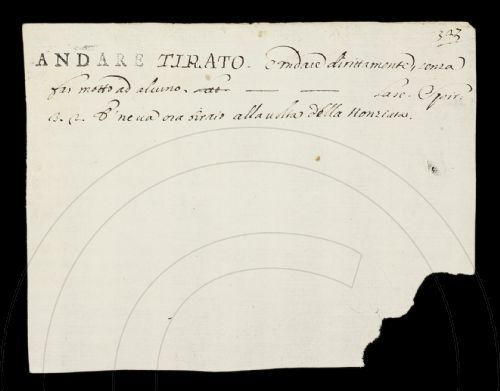 323
ANDARE TIRATO. Andare dirittamente, senza
far motto ad alcuno. — —
3. 2. E ne va ora tirato alla volta della Nonziata.